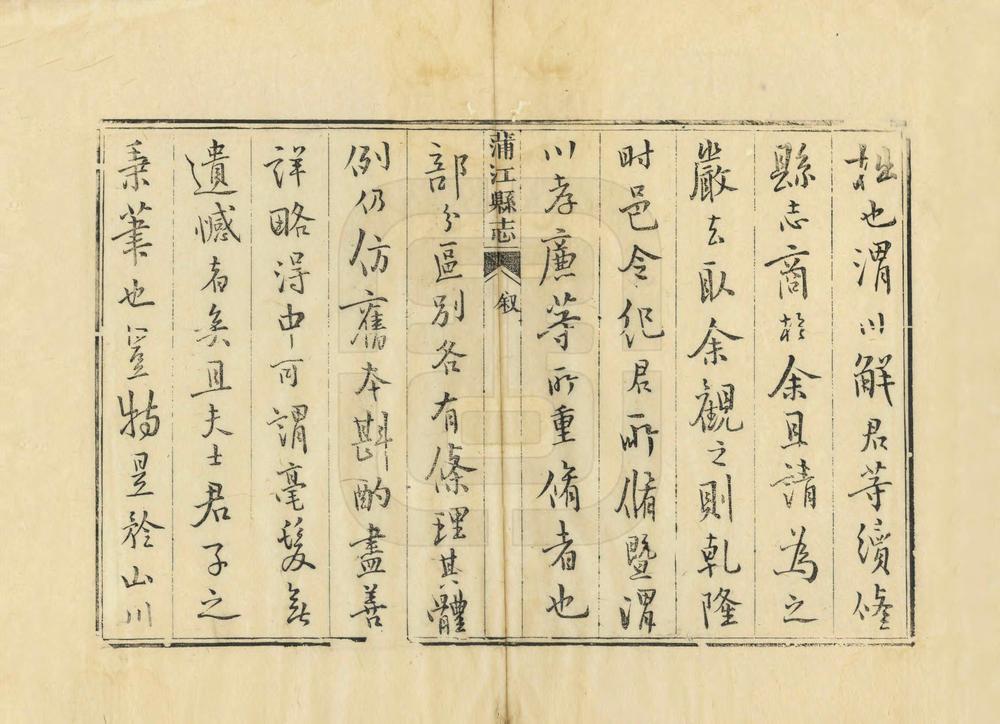 也渭川解君等續修
縣志商於余且請為之
嚴玄取余觀之則乾隆
時邑令紀君所脩暨渭
川孝廉等所重脩者也
蒲江縣志
叙
部分區別各有條理其體
例仍仿舊本斟酌盡善
詳略得中可謂毫髮無
遺憾者矣且夫士君子之
秉筆也豈特是於山川